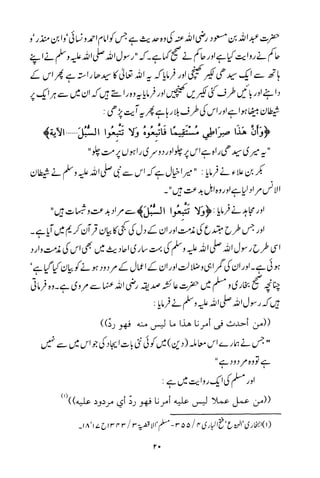 حضرت عبداللہ بن مسعود رضی اللہ عنہ کی وہ حدیث ہے جس کو امام احمد و نسائی، و ابن منذر، و
حاکم نے روایت کیا ہے اور حاکم نے صحیح کہا ہے۔ کہ "رسول اللہ صلی اللہ علیہ وسلم نے اپنے
ہاتھ سے ایک سیدھی لکیر کھینچی اور فرمایا کہ یہ اللہ تعالیٰ کا سیدھا راستہ ہے پھر اس کے
داہنے اور بائیں طرف کئی لکیریں کھینچیں اور فرمایا یہ وہ راستے ہیں کہ ان میں سے ہر ایک پر
شیطان بیٹھا ہوا ہے اور اس کی طرف بلا رہا ہے پھر یہ آیت پڑھی :
﴿وَأَنَّ هَذَا صِرَاطِي مُسْتَقِيمًا فَاتَّبِعُوهُ وَلَا تَتَّبِعُوا السُّبُلَ-----الآية﴾
"یہ میری سیدھی راہ ہے اس پر چلو اور دوسری راہوں پر مت چلو"
بکر بن علاء نے فرمایا : "میرا خیال ہے کہ اس سے نبی صلی اللہ علیہ وسلم نے شیطان
الانس مراد لیا ہے اور وہ اہل بدعت ہیں"۔
اور مجاہد نے فرمایا : ﴿وَلَا تَتَّبِعُوا السُّبُلَ﴾ سے مراد بدعت و شبہات ہیں"
اور جس طرح مبتدع کی مذمت اور ان کے دل کی کجی کا بیان قرآن کریم میں آیا ہے۔
اسی طرح رسول اللہ صلی اللہ علیہ وسلم کی بہت ساری احادیث میں بھی اس کی مذمت وارد
ہوئی ہے۔ اور ان کی گمراہی و ضلالت اور ان کے اعمال کے مردود ہونے کو بیان کیا گیا ہے،
چنانچہ صحیح بخاری و مسلم میں حضرت عائشہ صدیقہ رضی اللہ عنہا سے مروی ہے۔ وہ فرماتی
ہیں کہ رسول اللہ صلی اللہ علیہ وسلم نے فرمایا :
((من أحدث فى أمرنا هذا ما ليس منه فهو ردّ))
"جس نے ہمارے اس معاملہ (دین) میں کوئی نئی بات ایجاد کی جو اس میں سے نہیں
ہے تو وہ مردود ہے"
اور مسلم کی ایک روایت میں ہے :
((من عمل عملا ليس عليه أمرنا فهو ردّ أي مردود عليه))(۱)
(۱) البخاری، البیوع، فتح الباری ۴/ ۳۵۵- مسلم، الاقضیۃ ۳/ ۱۳۴۳ ح ۱۷، ۱۸۔
۲۰